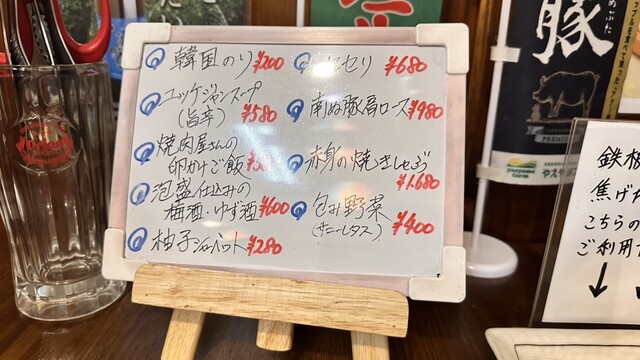 韓国のり ¥200
ユッケジャンスープ
(旨辛) ¥580
焼肉屋さんの
卵かけご飯
泡盛仕込みの
梅酒・ゆず酒 ¥600
柚子シャーベット ¥280
セリ ¥680
南ぬ豚肩ロース ¥980
赤身の焼きしゃぶ
¥1.680
包み野菜
(サニーレタス) ¥400
豚
PREMIUM
鉄板
焦げた
こちらの
ご利用
↓ ↓
Orion